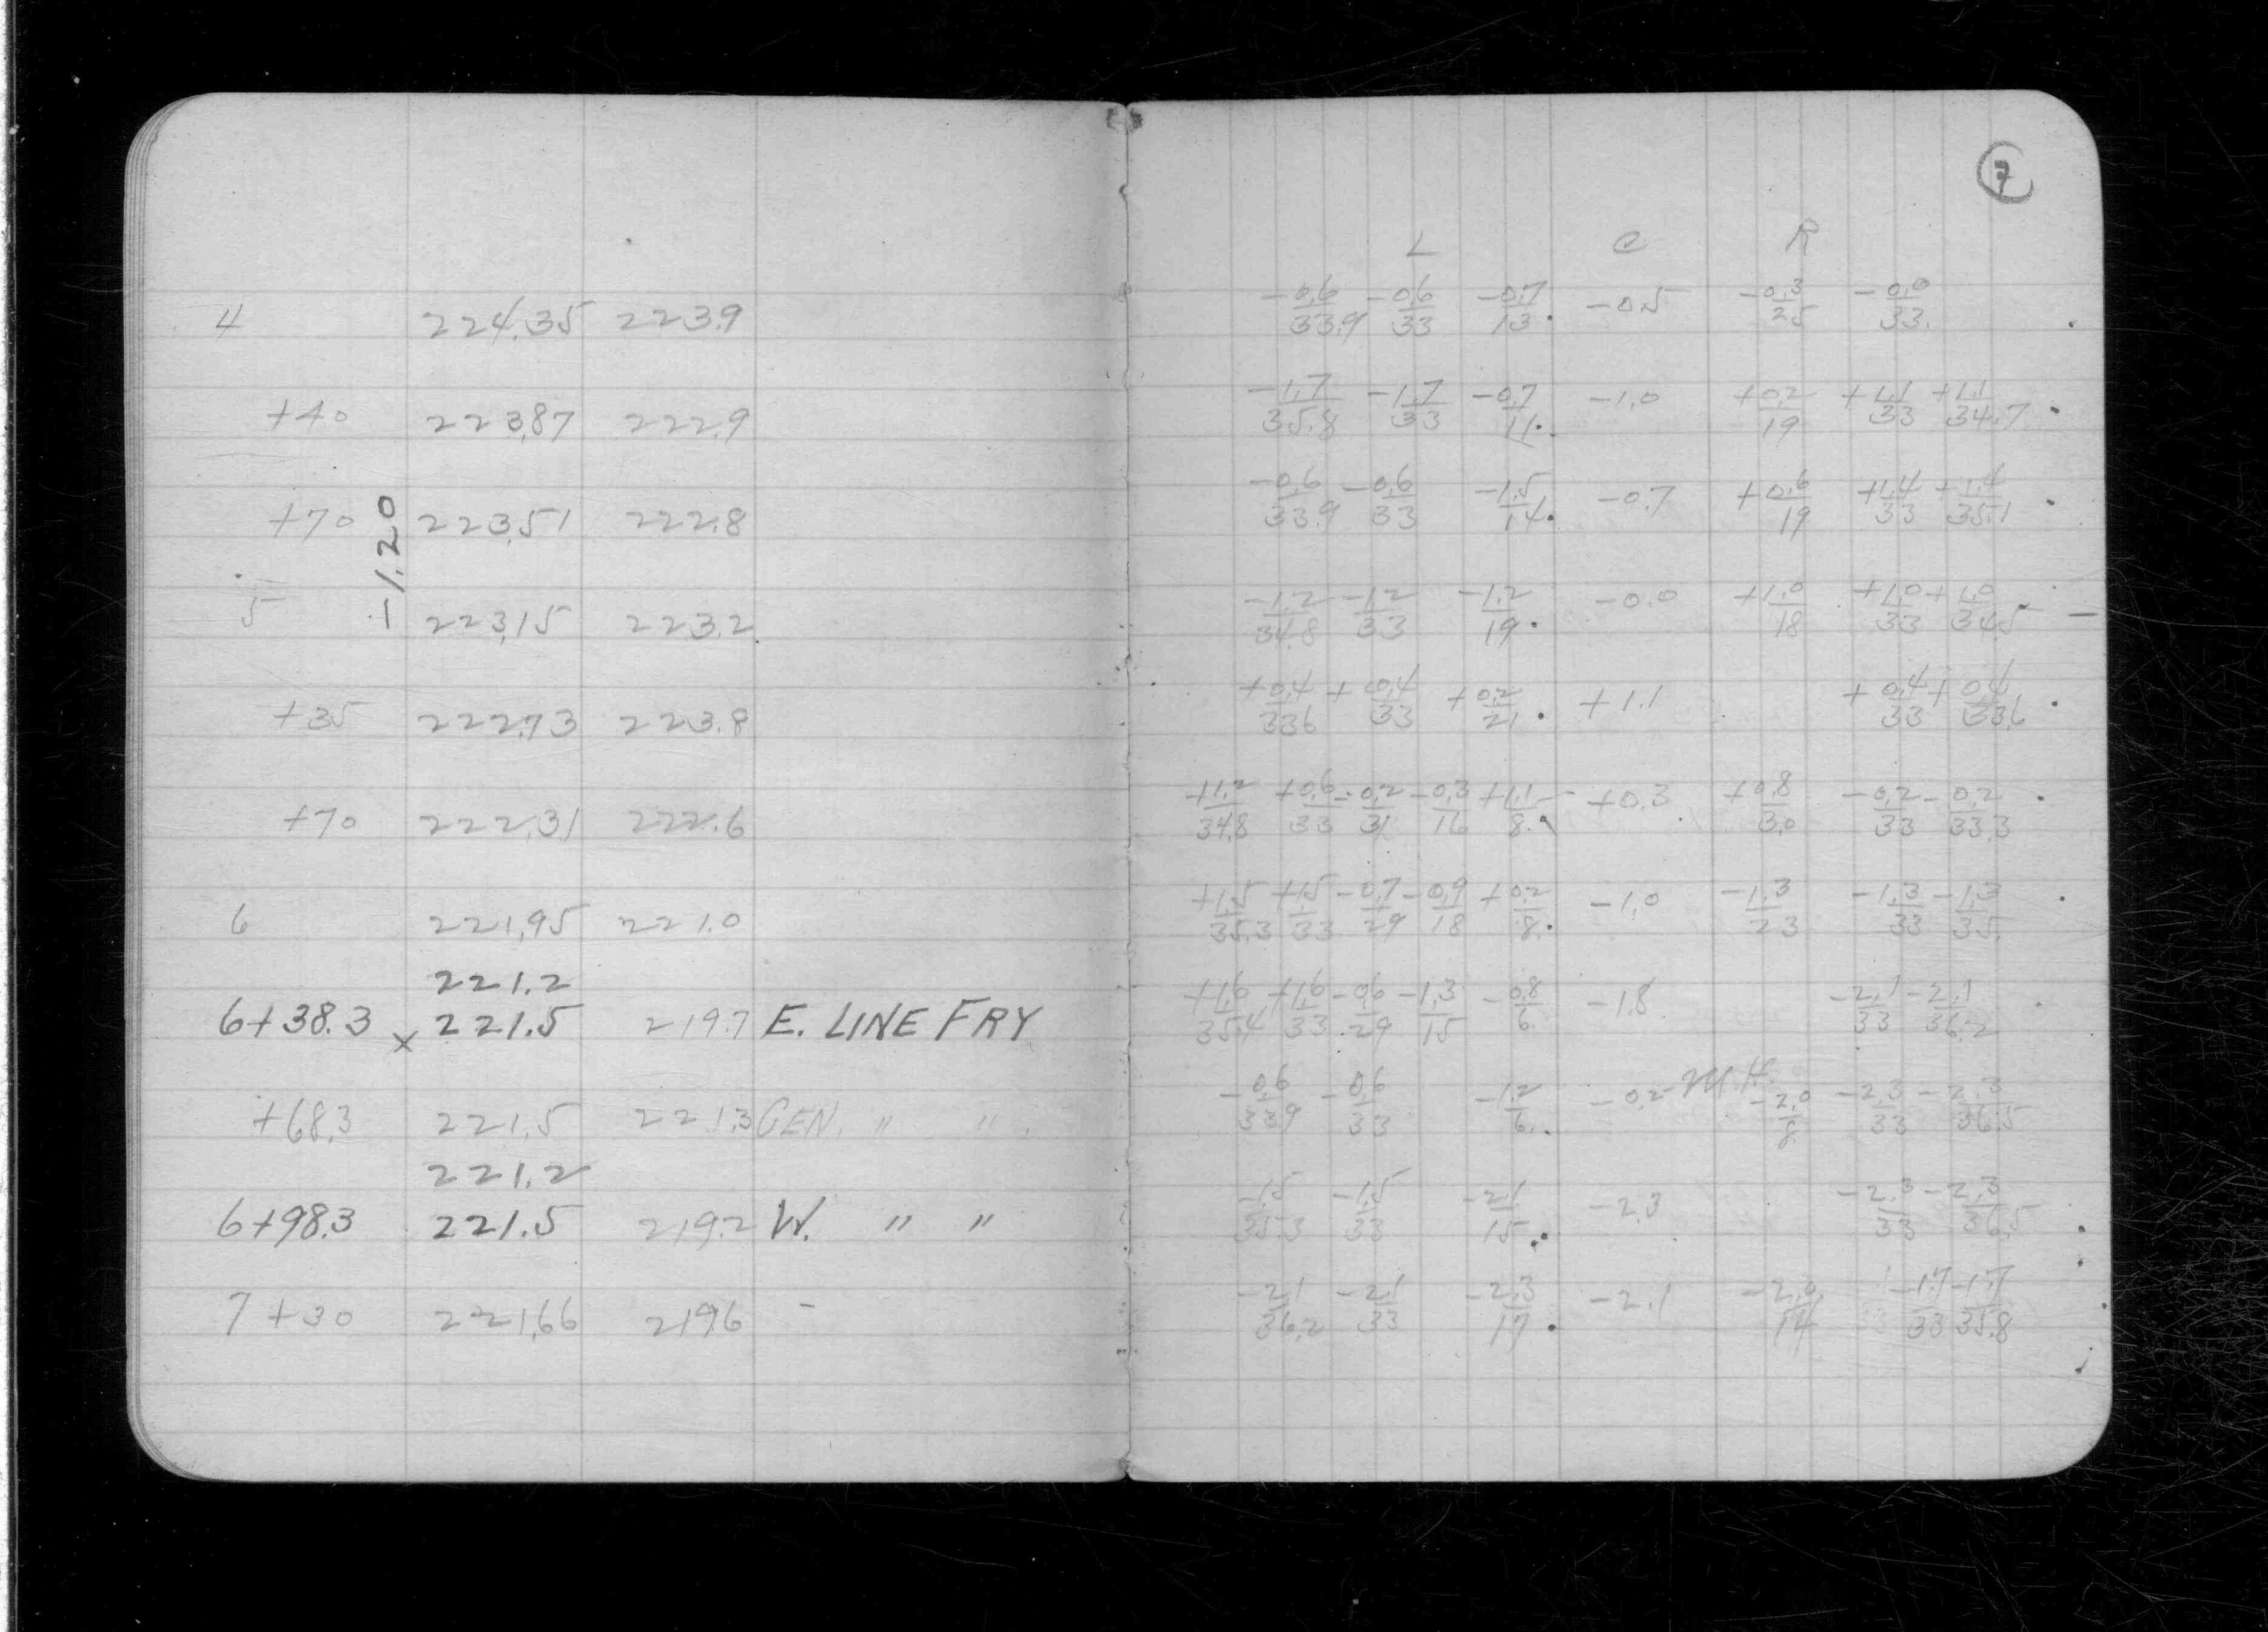 4 224.35 223.9
+40 223.87 222.9
+70 223.51 222.8
-1.20
5 223.15 223.2
+35 222.73 223.8
+70 222.31 222.6
6 221.95 221.0
221.2
6+38.3 x 221.5 219.7 E. LINE FRY
+68.3 221.5 221.3 CEN. " "
221.2
6+98.3 221.5 219.2 W. " "
7+30 221.66 219.6 -
7
L C R
-0.6/33.9 -0.6/33 -0.7/13 -0.5 -0.3/25 -0.0/33
-1.7/35.8 -1.7/33 -0.7/11 -1.0 +0.2/19 +1.1/33 +1.1/34.7
-0.6/33.9 -0.6/33 -1.5/14 -0.7 +0.6/19 +1.4/33 +1.4/35.1
-1.2/34.8 -1.2/33 -1.2/19 -0.0 +1.0/18 +1.0/33 +1.0/34.5
+0.4/33.6 +0.4/33 +0.2/21 +1.1 +0.4/33 +0.4/33.6
+1.2/34.8 +0.6/33 -0.2/31 -0.3/16 +1.1/8 +0.3 +0.8/30 -0.2/33 -0.2/33.3
+1.5/35.3 +1.5/33 -0.7/29 -0.9/18 +0.2/8 -1.0 -1.3/23 -1.3/33 -1.3/35
+1.6/35.4 +1.6/33 -0.6/29 -1.3/15 -0.8/6 -1.8 -2.1/33 -2.1/36.2
-0.6/33.9 -0.6/33 -1.2/6 -0.2 M.H. -2.0/8 -2.3/33 -2.3/36.5
-1.5/35.3 -1.5/33 -2.1/15 -2.3 -2.3/33 -2.3/36.5
-2.1/36.2 -2.1/33 -2.3/17 -2.1 -2.6/14 -1.7/33 -1.7/35.8